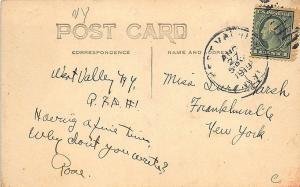 NY
POST CARD
CORRESPONDENCE
NAME AND ADDRESS
West Valley NY
R.F.D. #1
Having a fine time
Why don't you write?
Rose
Miss Marsh
Franklinville
New York
C